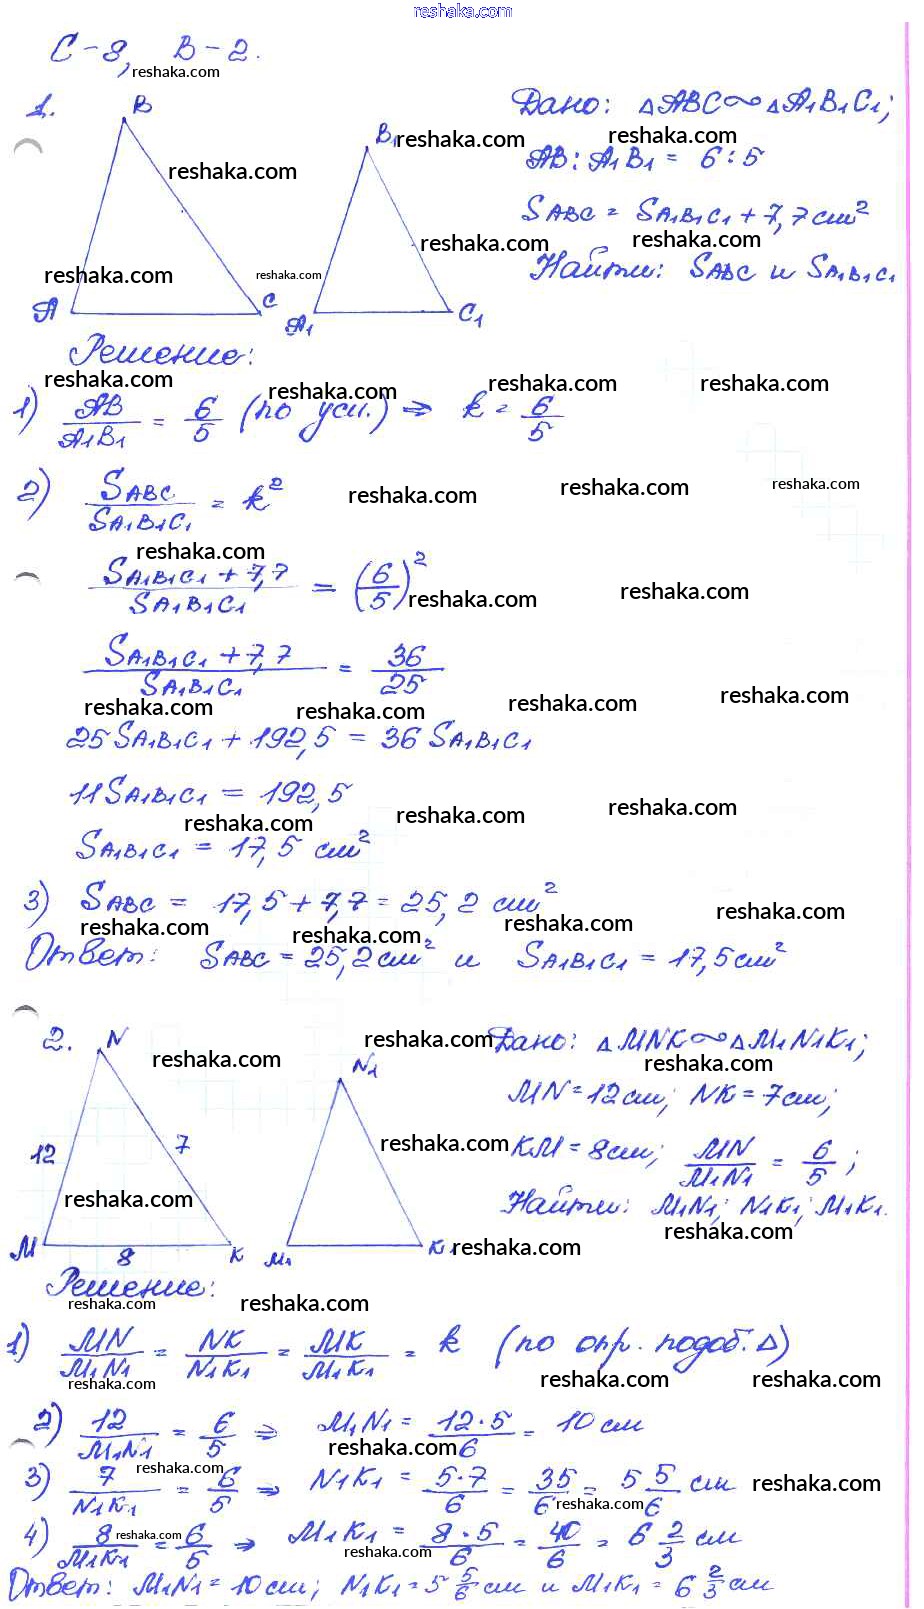 reshaka.com
С-8, В-2.
1.
B
A
C
B₁
A₁
C₁
Дано: △ABC∾△A₁B₁C₁;
AB:A₁B₁ = 6:5
S_ABC = S_A₁B₁C₁ + 7,7 см²
Найти: S_ABC и S_A₁B₁C₁
Решение:
1) AB/A₁B₁ = 6/5 (по усл.) ⇒ k = 6/5
2) S_ABC/S_A₁B₁C₁ = k²
(S_A₁B₁C₁ + 7,7)/S_A₁B₁C₁ = (6/5)²
(S_A₁B₁C₁ + 7,7)/S_A₁B₁C₁ = 36/25
25 S_A₁B₁C₁ + 192,5 = 36 S_A₁B₁C₁
11 S_A₁B₁C₁ = 192,5
S_A₁B₁C₁ = 17,5 см²
3) S_ABC = 17,5 + 7,7 = 25,2 см²
Ответ: S_ABC = 25,2 см² и S_A₁B₁C₁ = 17,5 см²
2.
N
12
7
M
8
K
N₁
M₁
K₁
Дано: △MNK∾△M₁N₁K₁;
MN = 12 см; NK = 7 см;
KM = 8 см; MN/M₁N₁ = 6/5;
Найти: M₁N₁; N₁K₁; M₁K₁.
Решение:
1) MN/M₁N₁ = NK/N₁K₁ = MK/M₁K₁ = k (по опр. подоб. △)
2) 12/M₁N₁ = 6/5 ⇒ M₁N₁ = 12·5/6 = 10 см
3) 7/N₁K₁ = 6/5 ⇒ N₁K₁ = 5·7/6 = 35/6 = 5 5/6 см
4) 8/M₁K₁ = 6/5 ⇒ M₁K₁ = 8·5/6 = 40/6 = 6 2/3 см
Ответ: M₁N₁ = 10 см; N₁K₁ = 5 5/6 см и M₁K₁ = 6 2/3 см